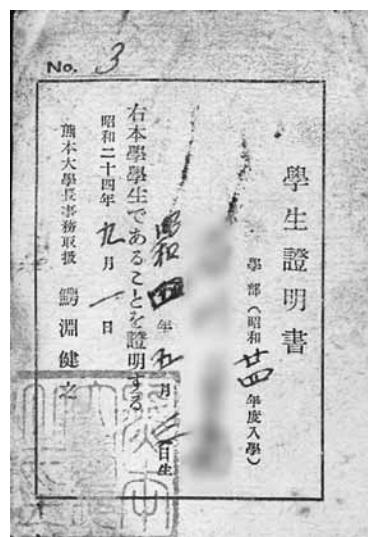 No. 3
學生證明書
學部(昭和廿四年度入學)
昭和四年五月
日生
右本學學生であることを證明する
昭和二十四年九月一日
熊本大學長事務取扱
鰐淵健之